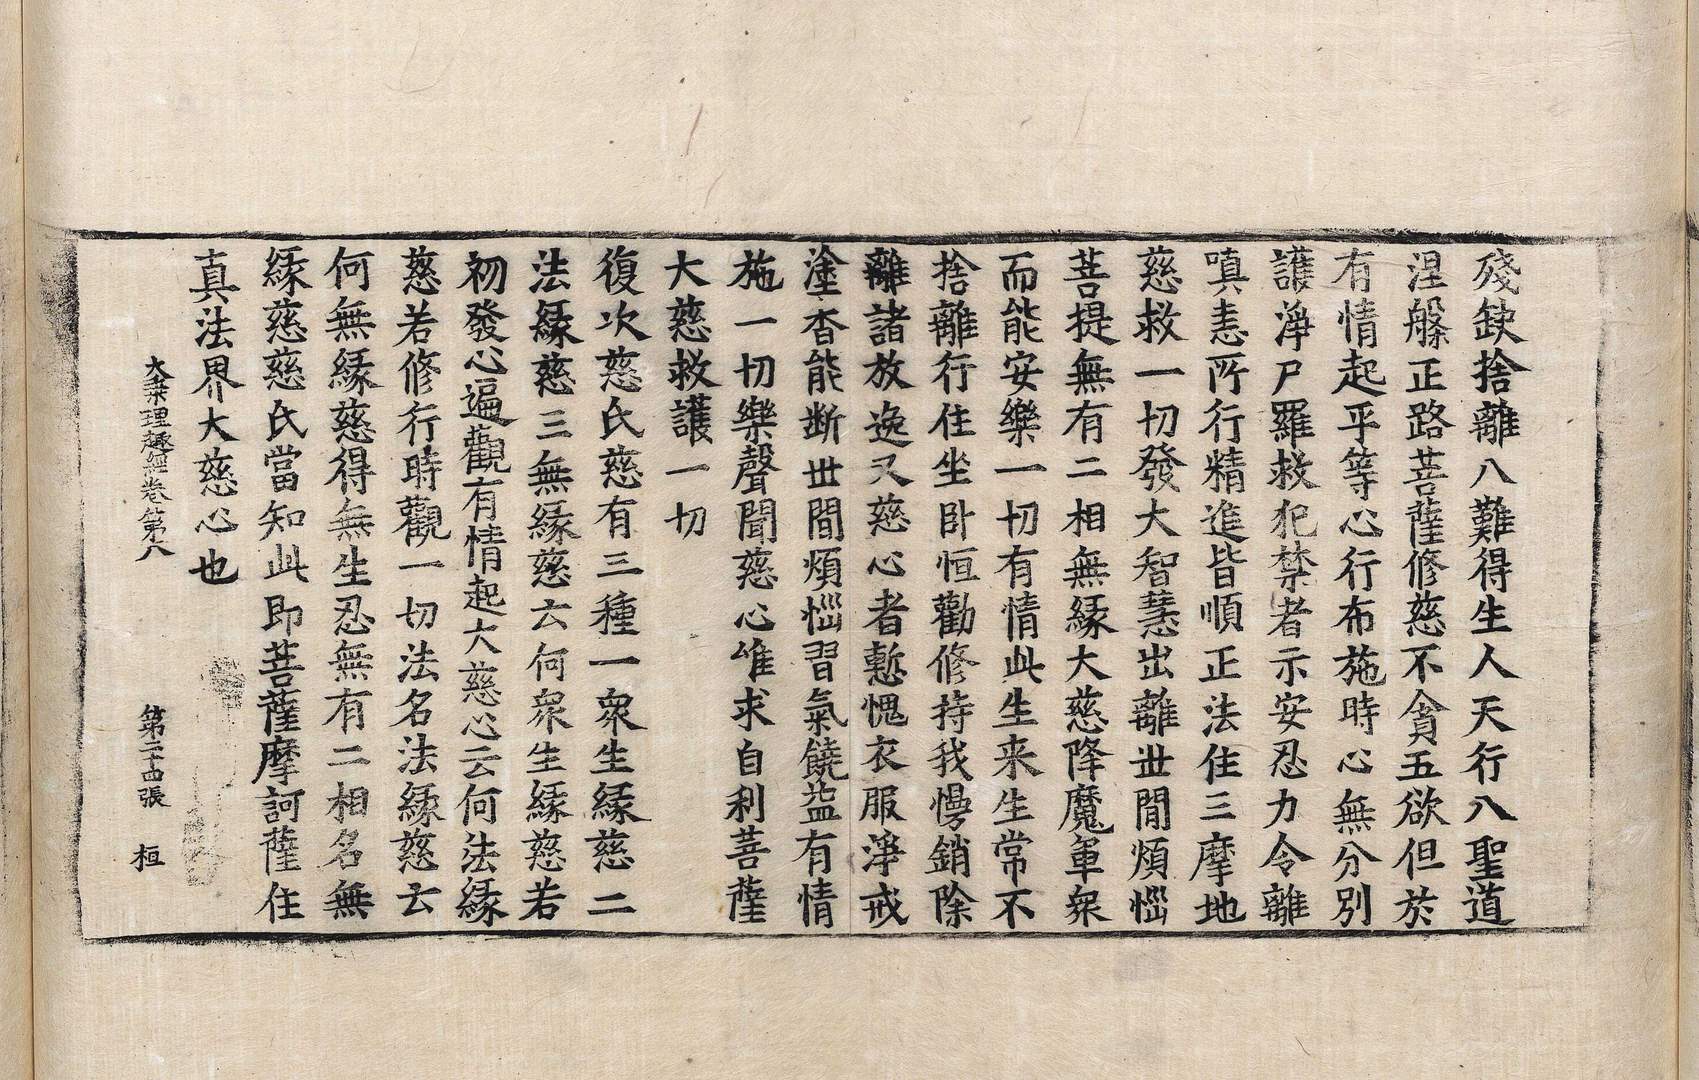 殘缺捨離八難得生人天行八聖道
涅槃正路菩薩修慈不貪五欲但於
有情起平等心行布施時心無分別
護淨尸羅救犯禁者示安忍力令離
嗔恚所行精進皆順正法住三摩地
慈救一切發大智慧出離世間煩惱
菩提無有二相無緣大慈降魔軍衆
而能安樂一切有情此生来生常不
捨離行住坐卧恒勸修持我慢銷除
離諸放逸又慈心者慙愧衣服淨戒
塗香能断世間煩惱習氣饒益有情
施一切樂聲聞慈心唯求自利菩薩
大慈救護一切
復次慈氏慈有三種一衆生緣慈二
法緣慈三無緣慈云何衆生緣慈若
初發心遍觀有情起大慈心云何法緣
慈若修行時觀一切法名法緣慈云
何無緣慈得無生忍無有二相名無
緣慈慈氏當知此即菩薩摩訶薩住
真法界大慈心也
大乗理趣経卷第八 第二十四張 桓